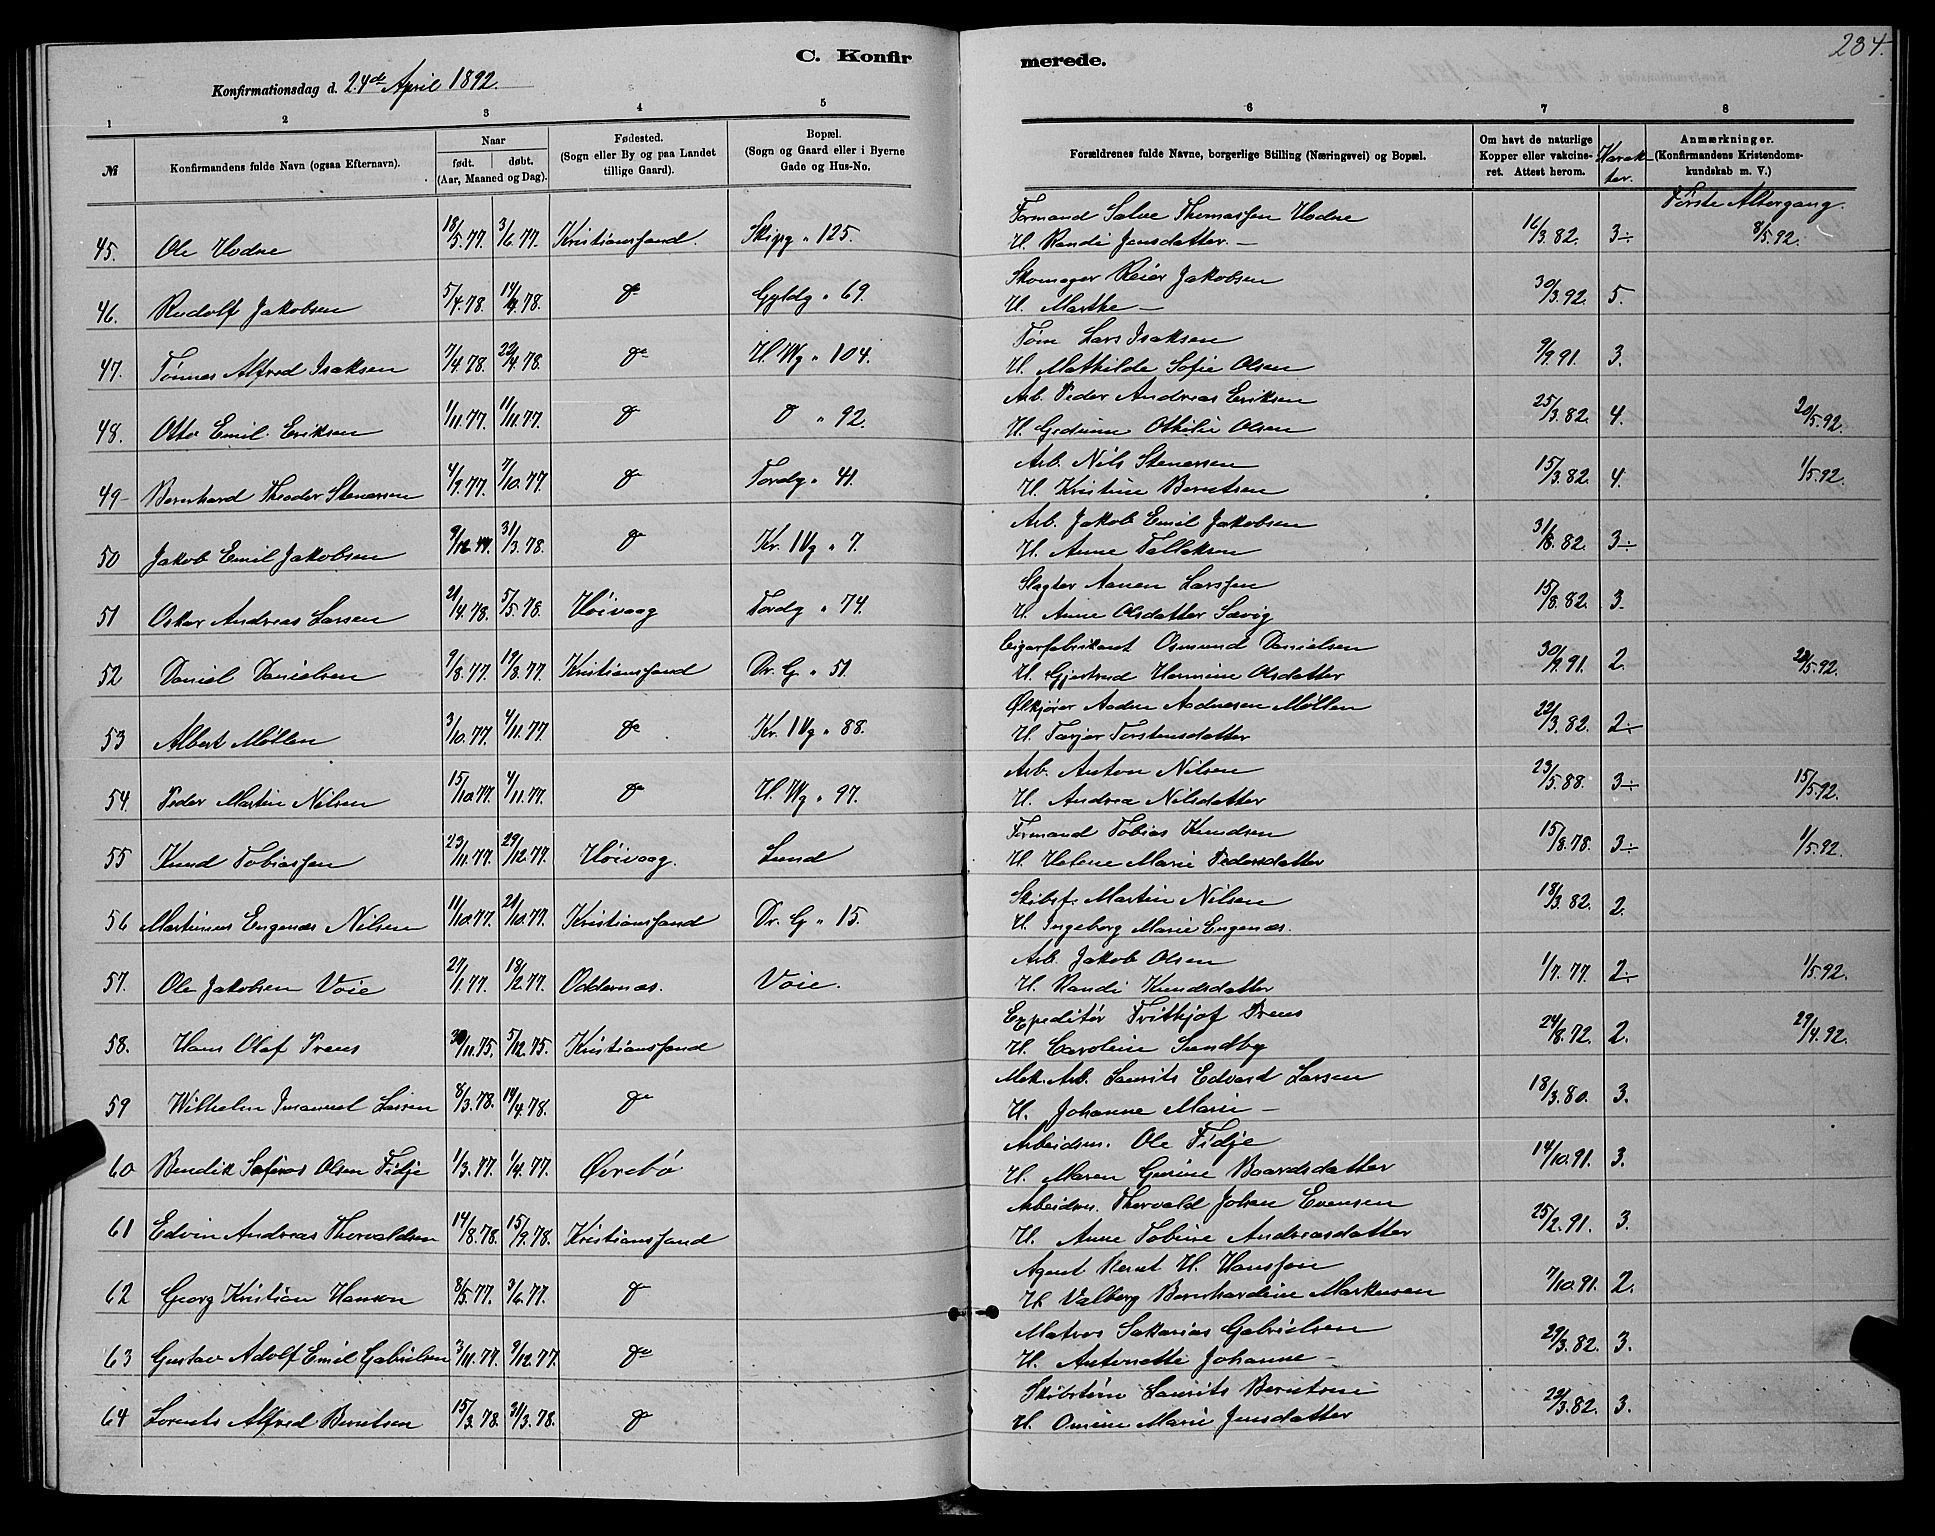 C. Konfir merede. 234.
Konfirmationsdag d. 24de April 1892.
1 2 3 4 5 6 7 8
№ Konfirmandens fulde Navn (ogsaa Efternavn). Naar født. døbt. (Aar, Maaned og Dag). Fødested. (Sogn eller By og paa Landet tillige Gaard). Bopæl. (Sogn og Gaard eller i Byerne Gade og Hus-No. Forældrenes fulde Navne, borgerlige Stilling (Næringsvei) og Bopæl. Om havt de naturlige Kopper eller vakcineret. Attest herom. Karakter. Anmærkninger. (Konfirmandens Kristendomskundskab m. V.)
Første Altergang.
45. Ole Hodne 18/5.77. 3/6.77. Kristianssand. Skipg " 125. Formand Salve Thomassen Hodne 16/3.82. 3÷ 8/5.92.
H. Randi Jensdatter. —
46. Rudolf Jakobsen 5/4.78. 14/4.78. do Gyldg " 69. Skomager Reier Jakobsen 30/3.92. 5.
H. Marthe —
47. Tønnes Alfred Isaksen 7/4.78. 22/4.78. do H. Wg " 104. Tøm Lars Isaksen 9/9.91. 3.
H. Mathilde Sofie Olsen
48. Otto Emil Eriksen 1/11.77. 11/11.77. do do " 92. Arb. Peder Andreas Eriksen 25/3.82. 4. 20/5.92.
H. Gedine Othilie Olsen
49– Bernhard Theodor Stenersen 4/9.77. 7/10.77. do Tordg " 41. Arb. Nils Stenersen 15/3.82. 4. 1/5.92.
H. Kristine Berntsen
50 Jakob Emil Jakobsen 9/12.77. 31/3.78. do Kr. IVg " 7. Arb. Jakob Emil Jakobsen 31/8.82. 3÷
H. Anne Tallaksen
51 Oskar Andreas Larsen 21/4.78. 5/5.78. Høivaag Tordg " 74. Slagter Aanen Larssen 15/8.82. 3.
H. Anne Olsdatter Sævig
52 Daniel Danielsen 9/8.77. 19/8.77. Kristianssand Dr. G " 51. Cigarfabrikant Osmund Danielsen 30/9.91. 2. 22/5.92.
H. Gjertrud Hermine Olsdatter
53 Albert Møllen 3/10.77. 4/11.77. do Kr. IVg " 88. Ølkjører Aadne Aadnesen Møllen 22/3.82. 2÷
H. Tarjer Torstensdatter
54. Peder Martin Nilsen 15/10.77. 4/11.77. do H. Wg " 97. Arb. Anton Nilsen 23/5.88. 3÷ 15/5.92.
H. Andrea Nilsdatter
55 Knud Tobiassen 23/11.77. 29/12.77. Høivaag. Lund Formand Tobias Knudsen 15/8.78. 3÷ 1/5.92.
H. Helene Marie Pedersdatter
56 Martinius Engenæs Nilsen 11/10.77. 21/10.77. Kristianssand Dr. G " 15. Skibsf. Martin Nilsen 18/3.82. 2.
H. Ingeborg Marie Engenæs.
57. Ole Jakobsen Voie 27/1.77. 18/2.77. Oddernæs. Voie. Arb. Jakob Olsen 1/7.77. 2÷ 1/5.92.
H. Randi Knudsdatter
58. Hans Olaf Prens 30/11.75. 5/12.75. Kristianssand Expeditør Frithjof Prens 24/8.72. 2. 29/4.92.
H. Caroline Sundby
59 Wilhelm Imanuel Larsen 8/3.78. 14/4.78. do Mek. Arb. Laurits Edvard Larsen 18/3.80. 3.
H. Johanne Marie —
60 Bendik Sofus Olsen Fidje 1/3.77. 1/4.77. Øvrebø Arbeidsm. Ole Fidje 14/10.91. 3.
H. Maren Gurine Baardsdatter
61 Edvin Andreas Thorvaldsen 14/8.78. 15/9.78. Kristianssand Arbeidsm. Thorvald Johan Evensen 25/2.91. 3.
H. Anne Tobine Andreasdatter
62 Georg Kristian Hansen 8/5.77. 3/6.77. do Agent Bernt H. Hanssen 7/10.91. 2.
H. Valborg Bernhardine Markusen
63 Gustav Adolf Emil Gabrielsen 3/11.77. 9/12.77. do Matros Sakarias Gabrielsen 29/3.82. 3.
H. Antonette Johanne —
64 Lorents Alfred Berntsen 15/3.78. 31/3.78. do Skibstøm Laurits Berntsen 23/3.82. 3.
H. Omine Marie Jensdatter